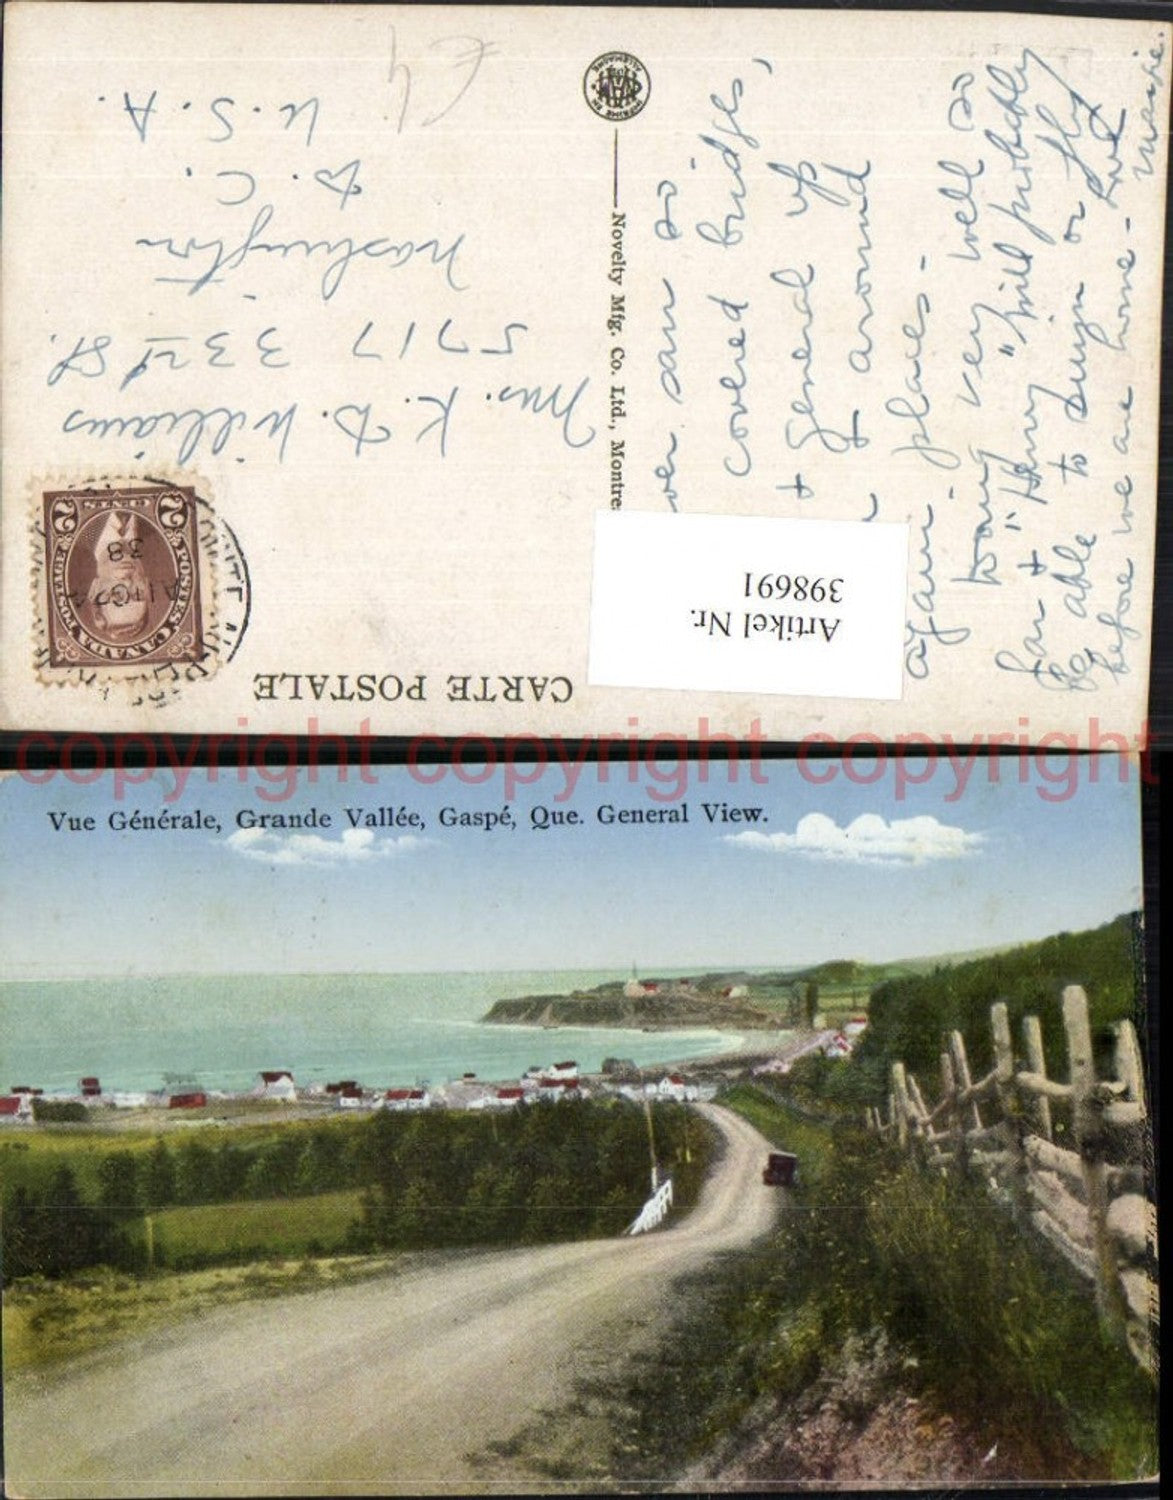 CARTE POSTALE
CANADA POSTAGE
POSTES CANADA
2 CENTS 2
38
Mrs. K. D. Williams
5717 33rd St.
Washington
D. C.
U. S. A.
£4
Novelty Mfg. Co. Ltd., Montre
Artikel Nr.
398691
ver saw so
covered bridges,
+ general up
around
again - places -
very well so
far + "Henry" will probably
be able to swim or fly
before we are home - Love
Marie.
copyright copyright copyright
Vue Générale, Grande Vallée, Gaspé, Que. General View.